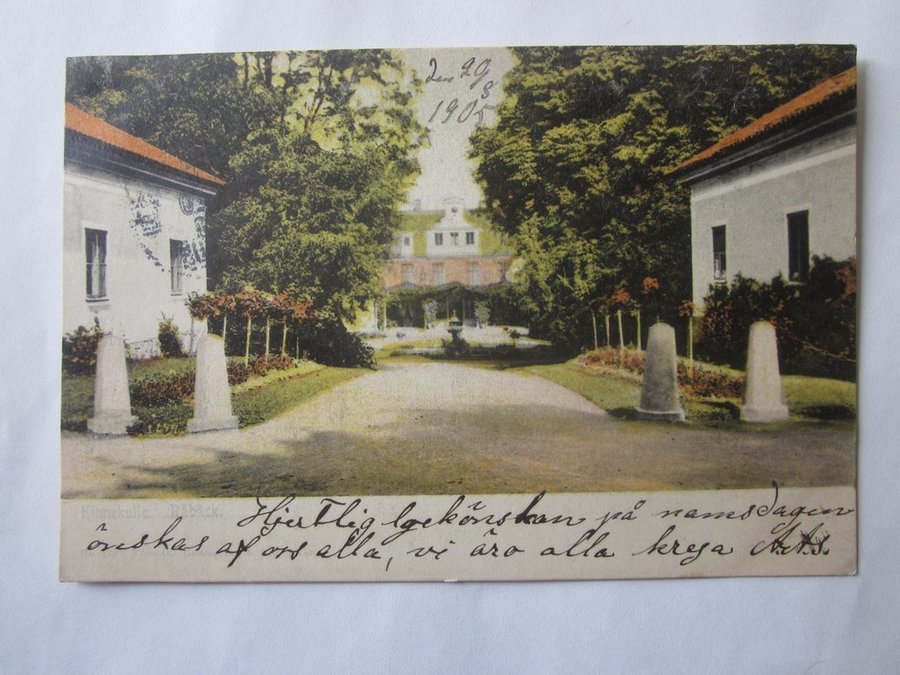 den 29
8
1905
Kinnekulle. Råbäck.
Hjertlig lyckönskan på namsdagen
önskas af oss alla, vi äro alla kresa